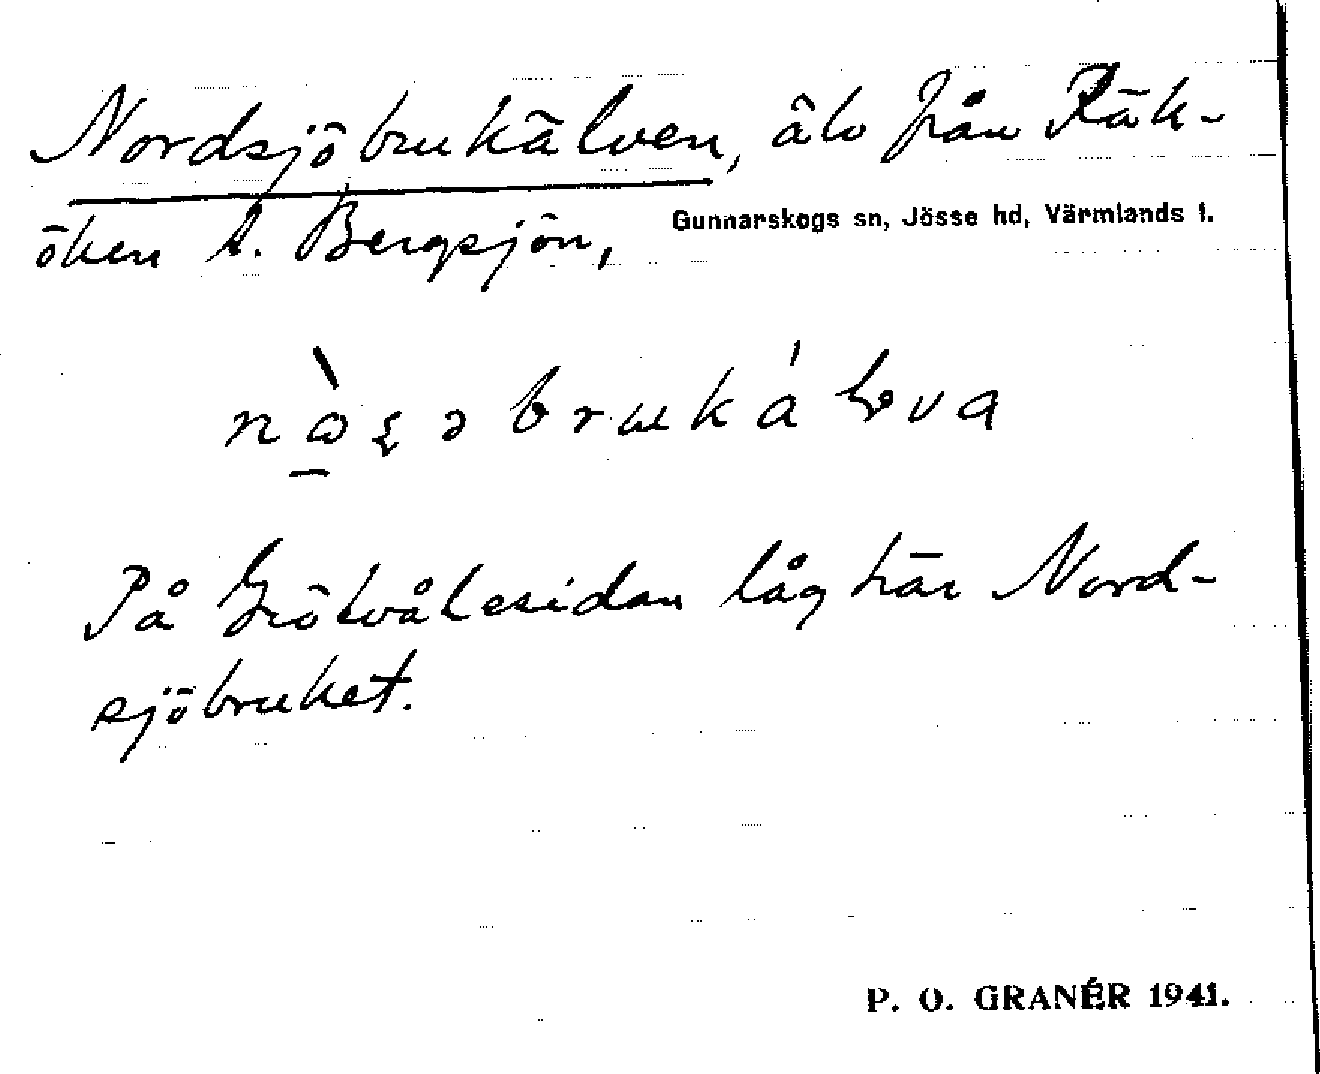 Nordsjöbrukälven, älv från Räk-
öken t. Bergsjön,
Gunnarskogs sn, Jösse hd, Värmlands l.
På Grötvålesidan låg här Nord-
sjöbruket.
P. O. GRANÉR 1941.